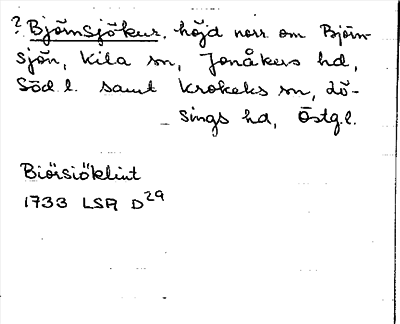 ? Björnsjökur, höjd norr om Björn-
sjön, Kila sn, Jonåkers hd,
Söd.l. samt Krokeks sn, Lö-
sings hd, Östg.l.
Biörsiöklint
1733 LSA D29